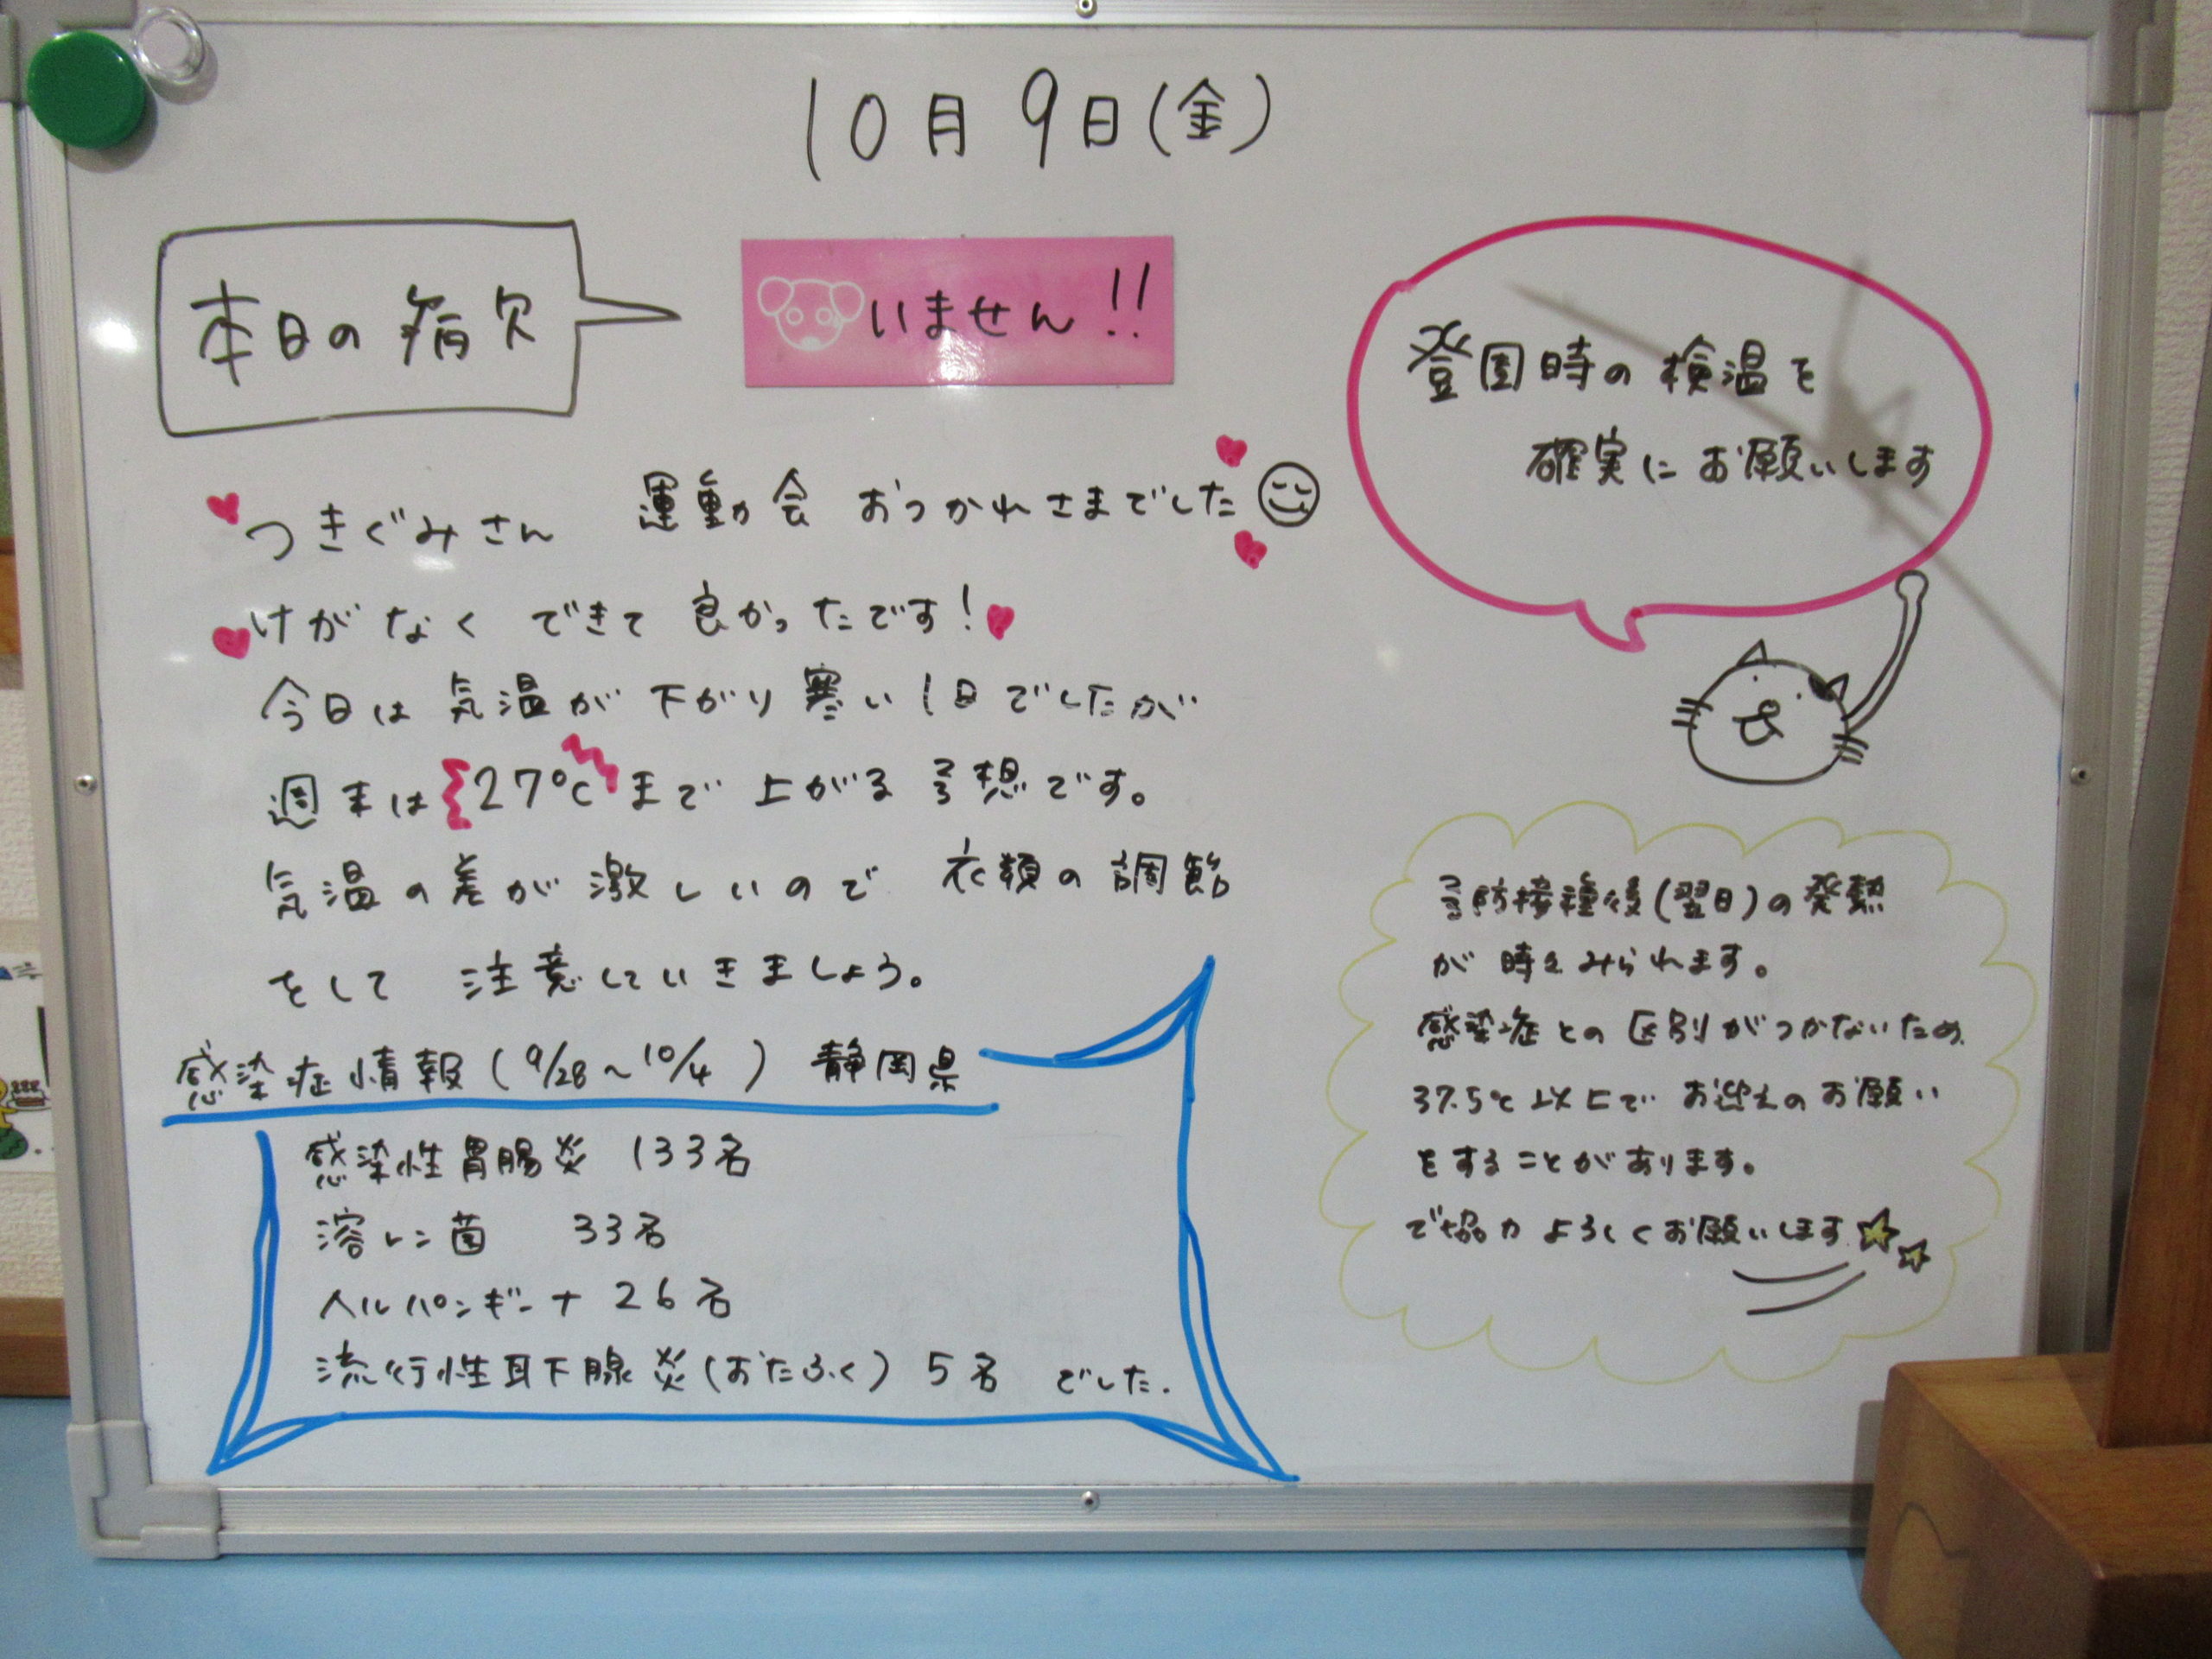 10月9日(金)
本日の病欠
いません!!
登園時の検温を
確実にお願いします
つきぐみさん 運動会 おつかれさまでした
けがなく できて 良かったです!
今日は 気温が 下がり 寒い 1日でしたが
週末は 27℃ まで 上がる 予想です。
気温の差が激しいので 衣類の調節
をして 注意していきましょう。
感染症情報(9/28~10/4) 静岡県
感染性胃腸炎 133名
溶レン菌 33名
ヘルパンギーナ 26名
流行性耳下腺炎(おたふく) 5名 でした.
予防接種後(翌日)の発熱
が 時々みられます。
感染症との区別がつかないため
37.5℃以上で お迎えのお願い
をすることがあります。
ご協力 よろしくお願いします